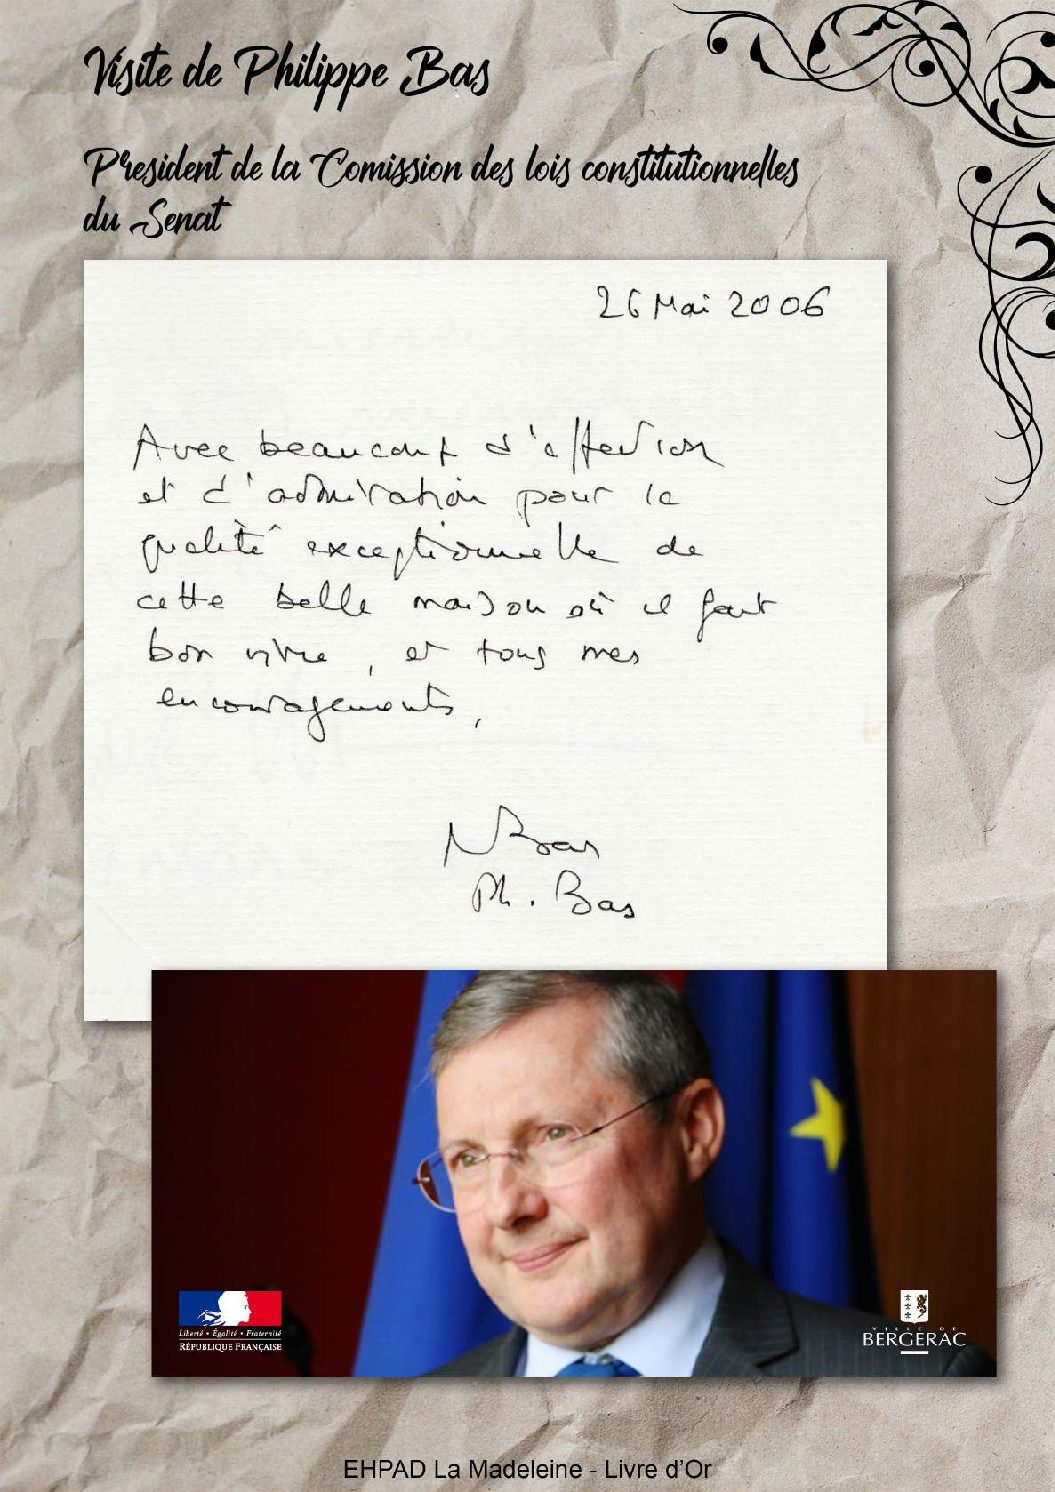 Visite de Philippe Bas
President de la Comission des lois constitutionnelles
du Senat
26 Mai 2006
Avec beaucoup d'affection
et d'admiration pour la
qualité exceptionnelle de
cette belle maison où il fait
bon vivre, et tous mes
encouragements,
Bas
Ph. Bas
Liberté • Égalité • Fraternité
RÉPUBLIQUE FRANÇAISE
VILLE DE
BERGERAC
EHPAD La Madeleine - Livre d'Or